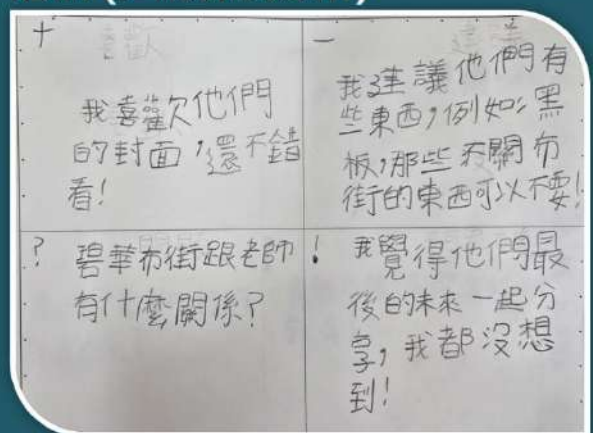 +
我喜歡他們
的封面,還不錯
看!
-
我建議他們有
些東西,例如:黑
板,那些不關布
街的東西可以不要!
?
碧華布街跟老師
有什麼關係?
!
我覺得他們最
後的未來一起分
享,我都沒想
到!